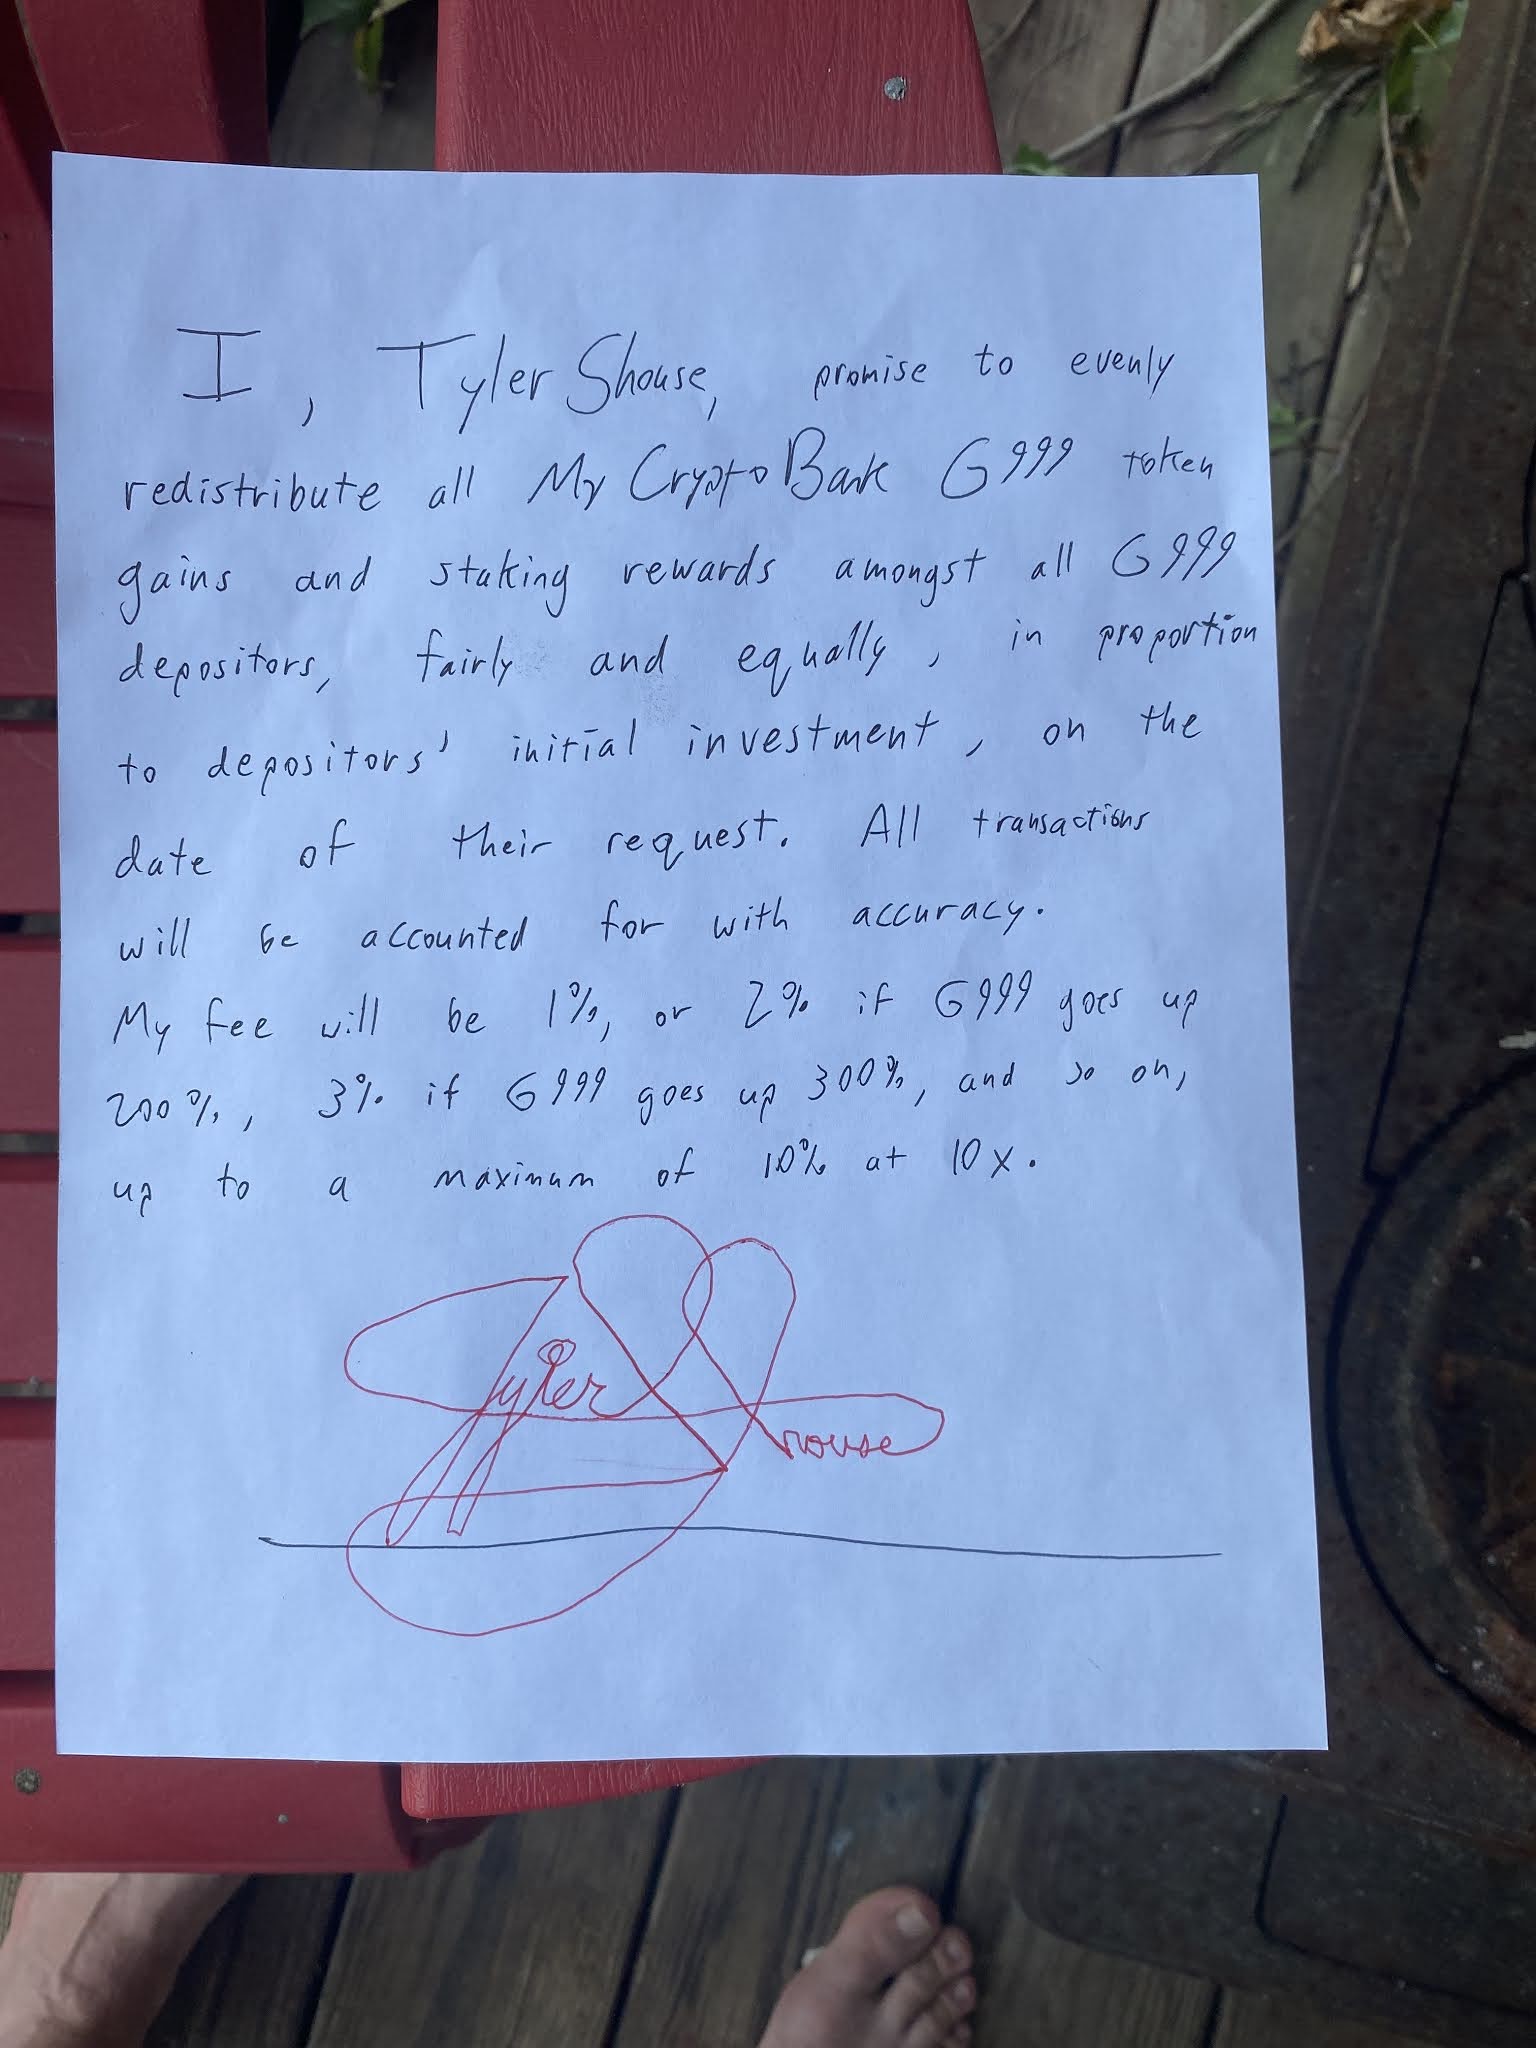 I, Tyler Shouse, promise to evenly
redistribute all My Crypto Bank G999 token
gains and staking rewards amongst all G999
depositors, fairly and equally, in proportion
to depositors' initial investment, on the
date of their request. All transactions
will be accounted for with accuracy.
My fee will be 1%, or 2% if G999 goes up
200%, 3% if G999 goes up 300%, and so on,
up to a maximum of 10% at 10x.
Tyler Shouse